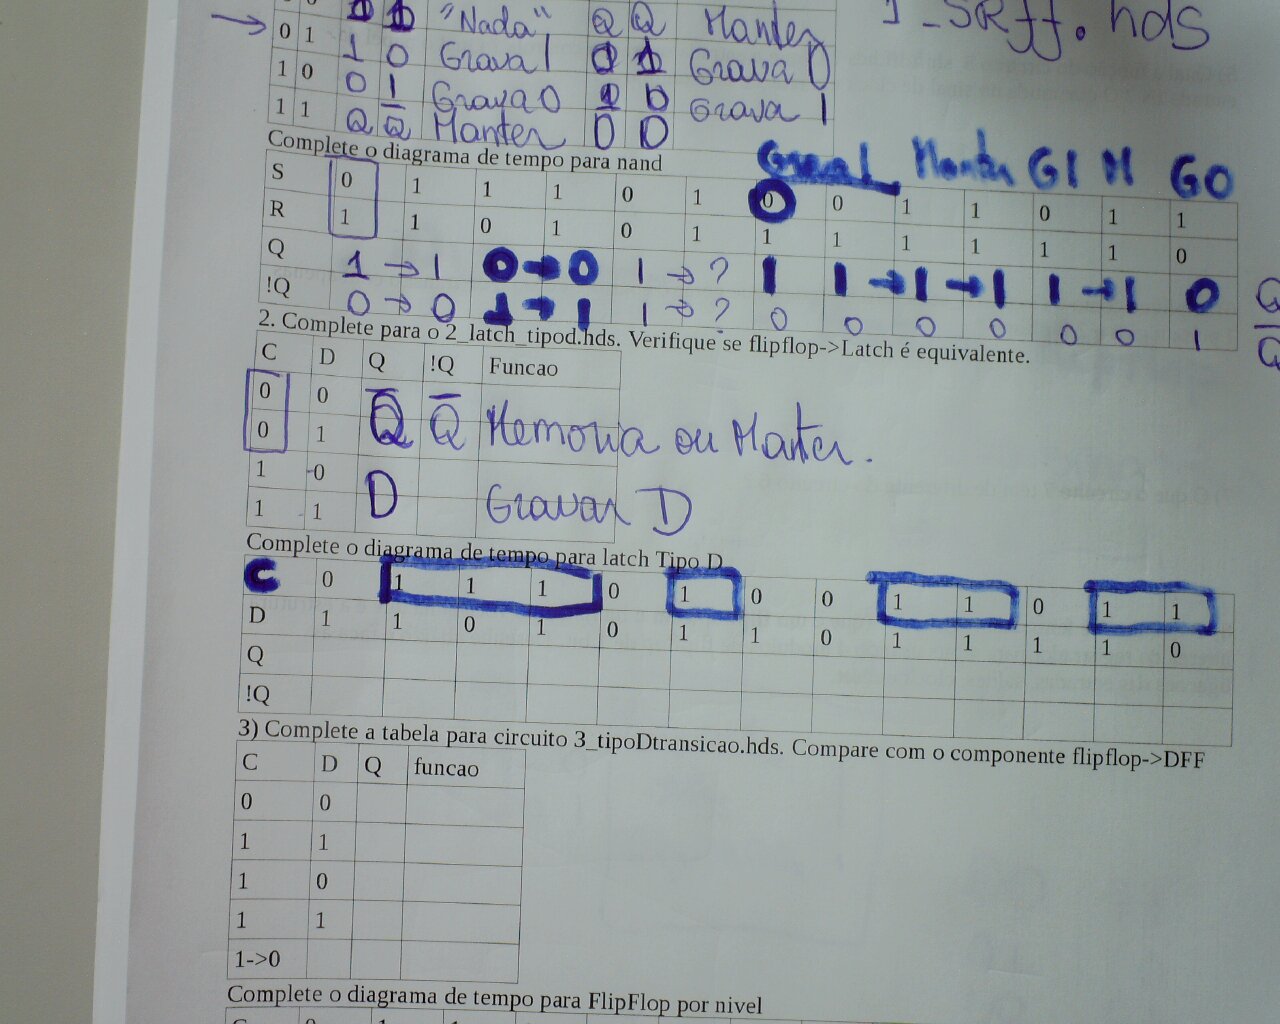 "Nada" Q Q Manter
1_SRff.hds
0 1 1 0 Grava 1 0 1 Grava 0
1 0 0 1 Grava 0 1 0 Grava 1
1 1 Q Q̅ Manter 0 0
Complete o diagrama de tempo para nand
Grava 1 Manter G1 M G0
S 0 1 1 1 0 1 0 0 1 1 0 1 1
R 1 1 0 1 0 1 1 1 1 1 1 1 0
Q 1 → 1 0 → 0 1 → ? 1 1 → 1 → 1 1 → 1 0
!Q 0 → 0 1 → 1 1 → ? 0 0 0 0 0 0 1
2. Complete para o 2_latch_tipod.hds. Verifique se flipflop->Latch é equivalente.
C D Q !Q Funcao
0 0
0 1 Q Q̅ Memoria ou Manter.
1 0
1 1 D Gravar D
Complete o diagrama de tempo para latch Tipo D
C 0 1 1 1 0 1 0 0 1 1 0 1 1
D 1 1 0 1 0 1 1 0 1 1 1 1 0
Q
!Q
3) Complete a tabela para circuito 3_tipoDtransicao.hds. Compare com o componente flipflop->DFF
C D Q funcao
0 0
1 1
1 0
1 1
1->0
Complete o diagrama de tempo para FlipFlop por nivel